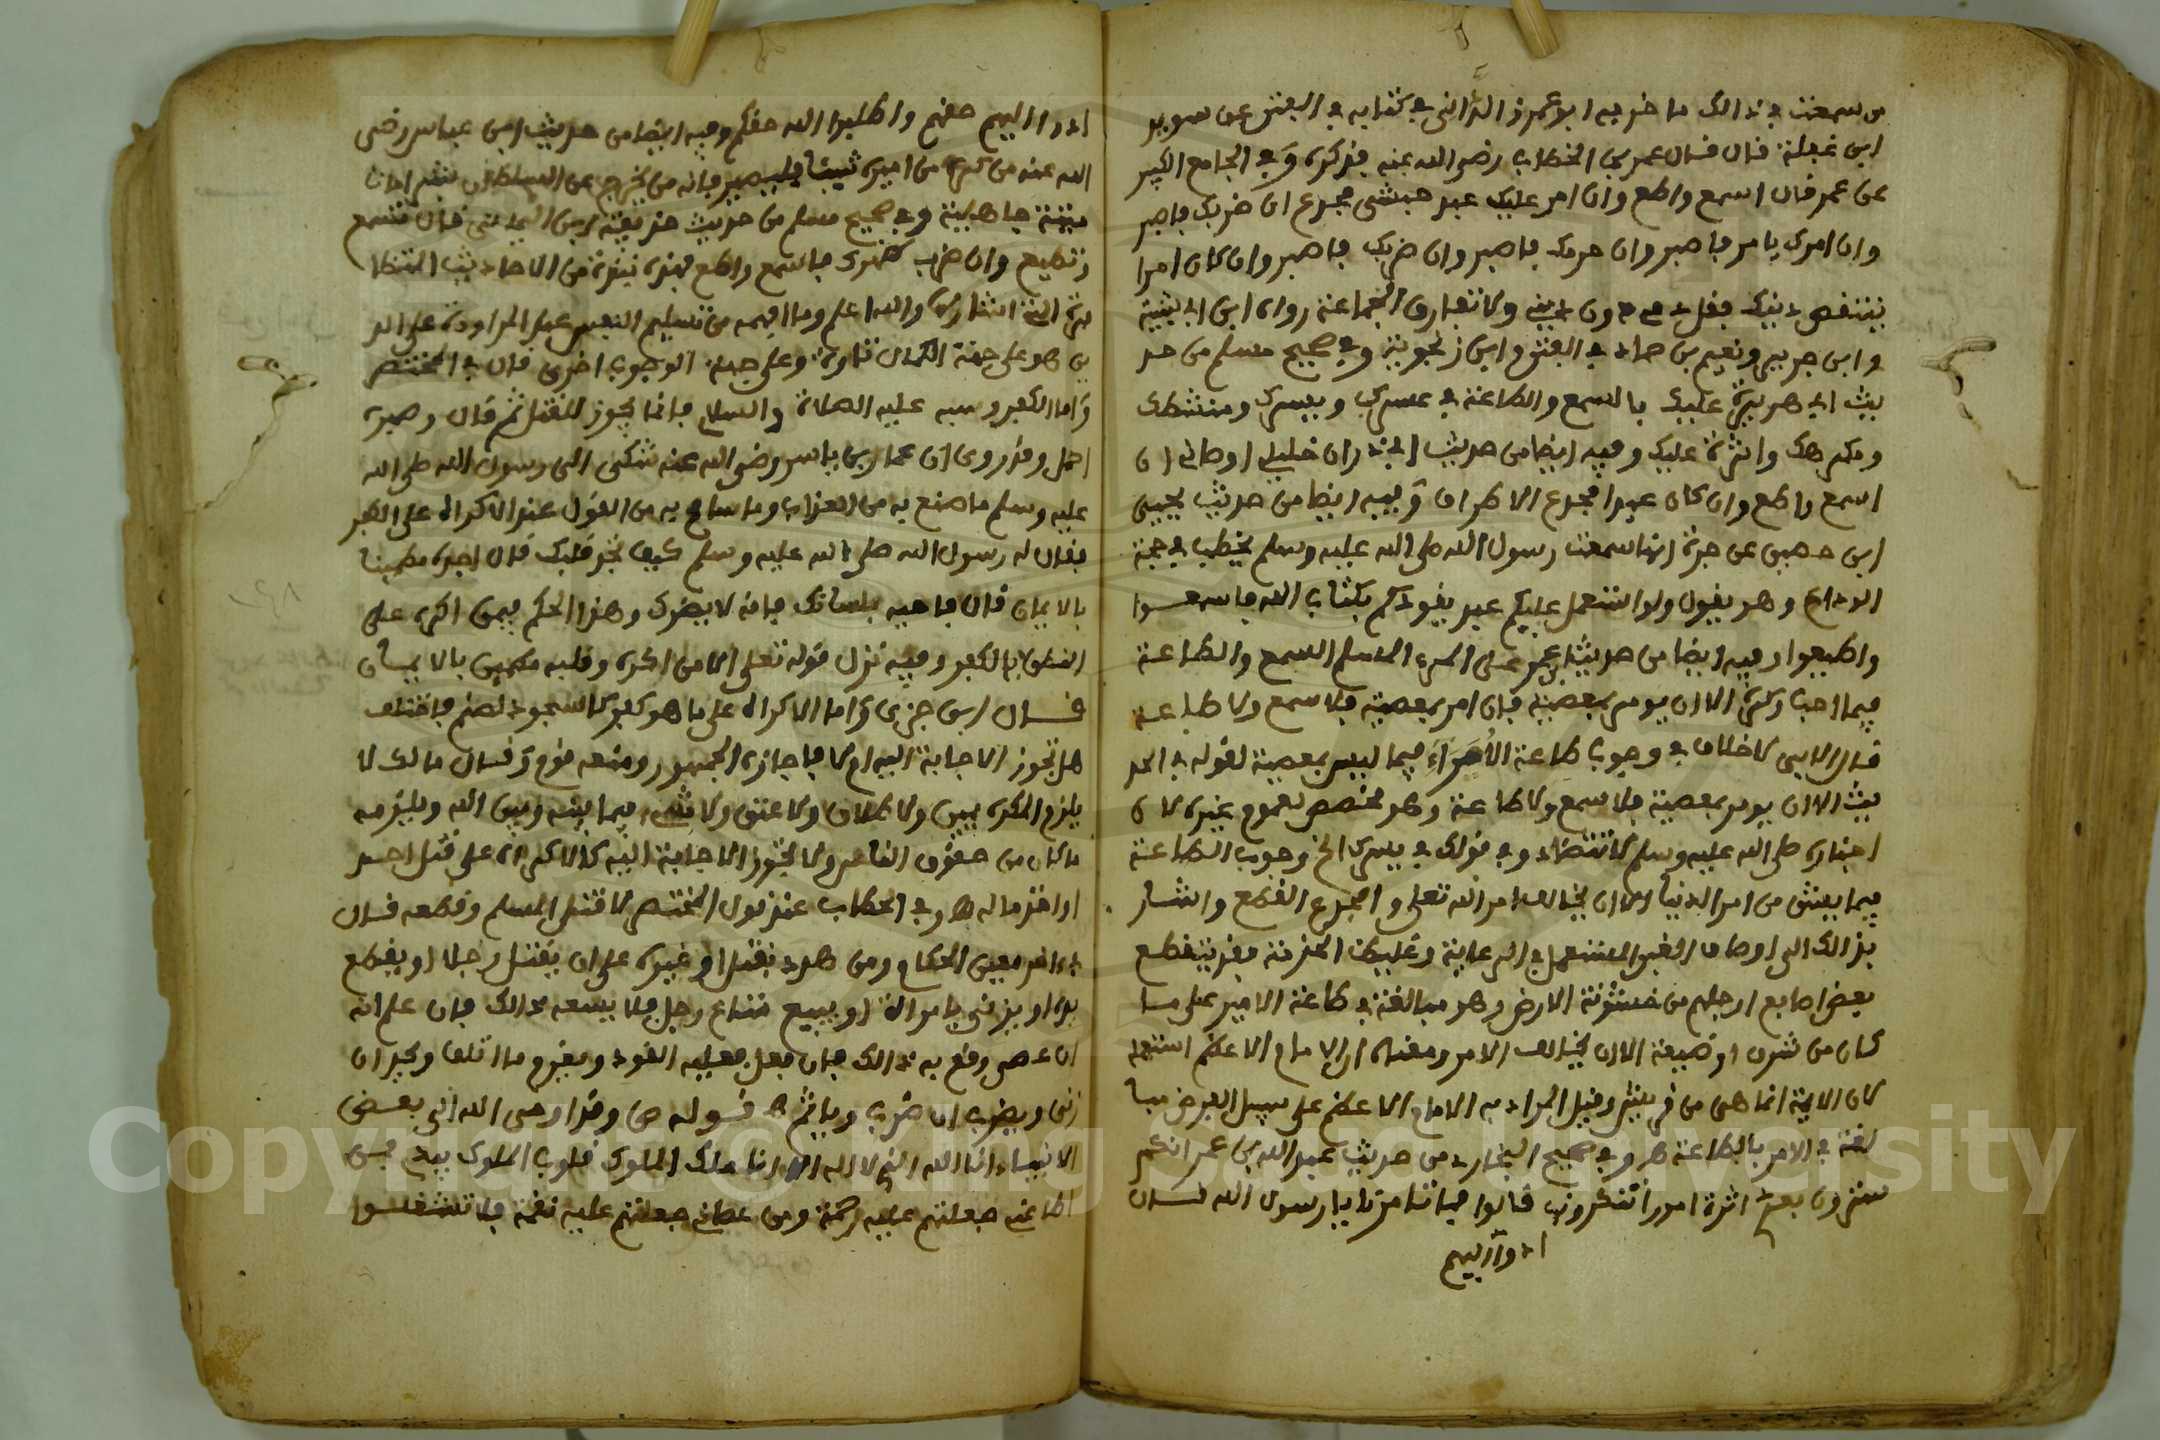 من سمعت في ذالك ما خرجه ابو عمرو الداني في كتابه في الفتن عن سويد
ابن غفلة قال قال عمر بن الخطاب رضي الله عنه فذكره وفي الجامع الكبير
عن عمر قال اسمع واطع وان امر عليك عبد حبشي مجدع ان ضربك فاصبر
وان امرك بامر فاصبر وان حرمك فاصبر وان ضربك فاصبر وان كان امرا
ينتقص دينك فقل دمي دون ديني ولا تفارق الجماعة رواه ابن ابي شيبة
وابن جرير ونعيم بن حماد في الفتن وابن زنجوية وفي صحيح مسلم من حد
يث ابي هريرة عليك بالسمع والطاعة في عسرك ويسرك ومنشطك
ومكرهك واثرة عليك وفيه ايضا من حديث ابي ذر ان خليلي اوصاني ان
اسمع واطع وان كان عبدا مجدع الاطراف وفيه ايضا من حديث يحيى
ابن حصين عن جدة انها سمعت رسول الله صلى الله عليه وسلم يخطب في حجة
الوداع وهو يقول ولو استعمل عليكم عبد يقودكم بكتاب الله فاسمعوا
واطيعوا وفيه ايضا من حديث ابن عمر على المرء المسلم السمع والطاعة
فيما احب وكره الا ان يومر بمعصية فان امر بمعصية فلا سمع ولا طاعة
قال الابي لا خلاف في وجوب طاعة الأمراء فيما ليس بمعصية لقوله في الحد
يث الا ان يومر بمعصية فلا سمع ولا طاعة وهو مخصص لعموم غيره لان
اخباره صلى الله عليه وسلم لا تتضاد وفي قولك في يسرك الخ وجوب الطاعة
فيما يشق من امر الدنيا الا ان يخالف امر الله تعلى والمجدع القطع واشار
بذالك الى اوصاف العبد المستعمل في الرعاية وغليظ الخدمة فقد يتقطع
بعض اصابع ارجلهم من خشونة الارض وهو مبالغة في طاعة الامير على ما
كان من شرف او ضيعة الا ان يخالف الامر ومعناه ان الامام الاعظم استعمله
لان الايمة انما هي من قريش وقيل المراد به الامام الاعظم على سبيل الفرض مبا
لغة في الامر بالطاعة هـ وفي صحيح البخاري من حديث عبد الله بن عمر انكم
سترون بعدي اثرة امورا تنكرونها قالوا فما تامرنا يا رسول الله قال
ادوا اليهم
ادوا اليهم حقهم واطلبوا الله حقكم وفيه ايضا من حديث ابن عباس رضي
الله عنه من كره من اميره شيئا فليصبر فانه من يخرج عن السلطان شبرا مات
ميتة جاهلية وفي صحيح مسلم من حديث حذيفة بن اليماني قال تسمع
وتطيع وان ضرب ظهرك فاسمع واطع فهذه نبذة من الاحاديث المتظا
هرة التي اشار والله اعلم وما افهمه من تسليم النفس عند المراودة على الد
ين هو على جهة الكمال تارة وعلى جهة الوجوب اخرى قال في المختصر
واما الكفر وسبه عليه الصلاة والسلام فانما يجوز للقتل ثم قال وصبره
اجمل وقد روي ان عمار بن ياسر رضي الله عنه شكى الى رسول الله صلى الله
عليه وسلم ما صنع به من العذاب وما سامح به من القول عند الاكراه على الكفر
فقال له رسول الله صلى الله عليه وسلم كيف تجد قلبك قال اجده مطمئنا
بالايمان قال فاجبه بلسانك فانه لا يضرك وهذا الحكم فيمن اكره على
النطق بالكفر وفيه نزل قوله تعلى الا من اكره وقلبه مطمئن بالايمان
قال ابن جزي واما الاكراه على ما هو كفر كالسجود لصنم فاختلف
هل تجوز الاجابة اليه ام لا فاجازه الجمهور ومنعه قوم وقال مالك لا
يلزم المكره يمين ولا طلاق ولا عتق ولا شيء فيما بينه وبين الله ويلزمه
ما كان من حقوق الناس ولا تجوز الاجابة اليه كالاكراه على قتل احد
او اخذ ماله هـ وفي الحطاب عند قول المختصر لا قتل المسلم وقطعه قال
في معين الحكام ومن هدد بقتل او غيره على ان يقتل رجلا او يقطع
يده او يزني بامراة او يبيع متاع رجل فلا يسعه ذالك فان علم انه
ان عصى وقع به ذالك فان فعل فعليه القود ويغرم ما اتلف ويحد ان
زنى ويضرب ان ضرب وياثم هـ قوله ص وقد اوحى الله الى بعض
الانبياء انا الله الذي لا اله الا انا ملك الملوك قلوب الملوك بيدي فمن
اطاعني جعلتهم عليه رحمة ومن عصاني جعلتهم عليه نقمة فلا تشتغلوا
Copyright © King Saud University